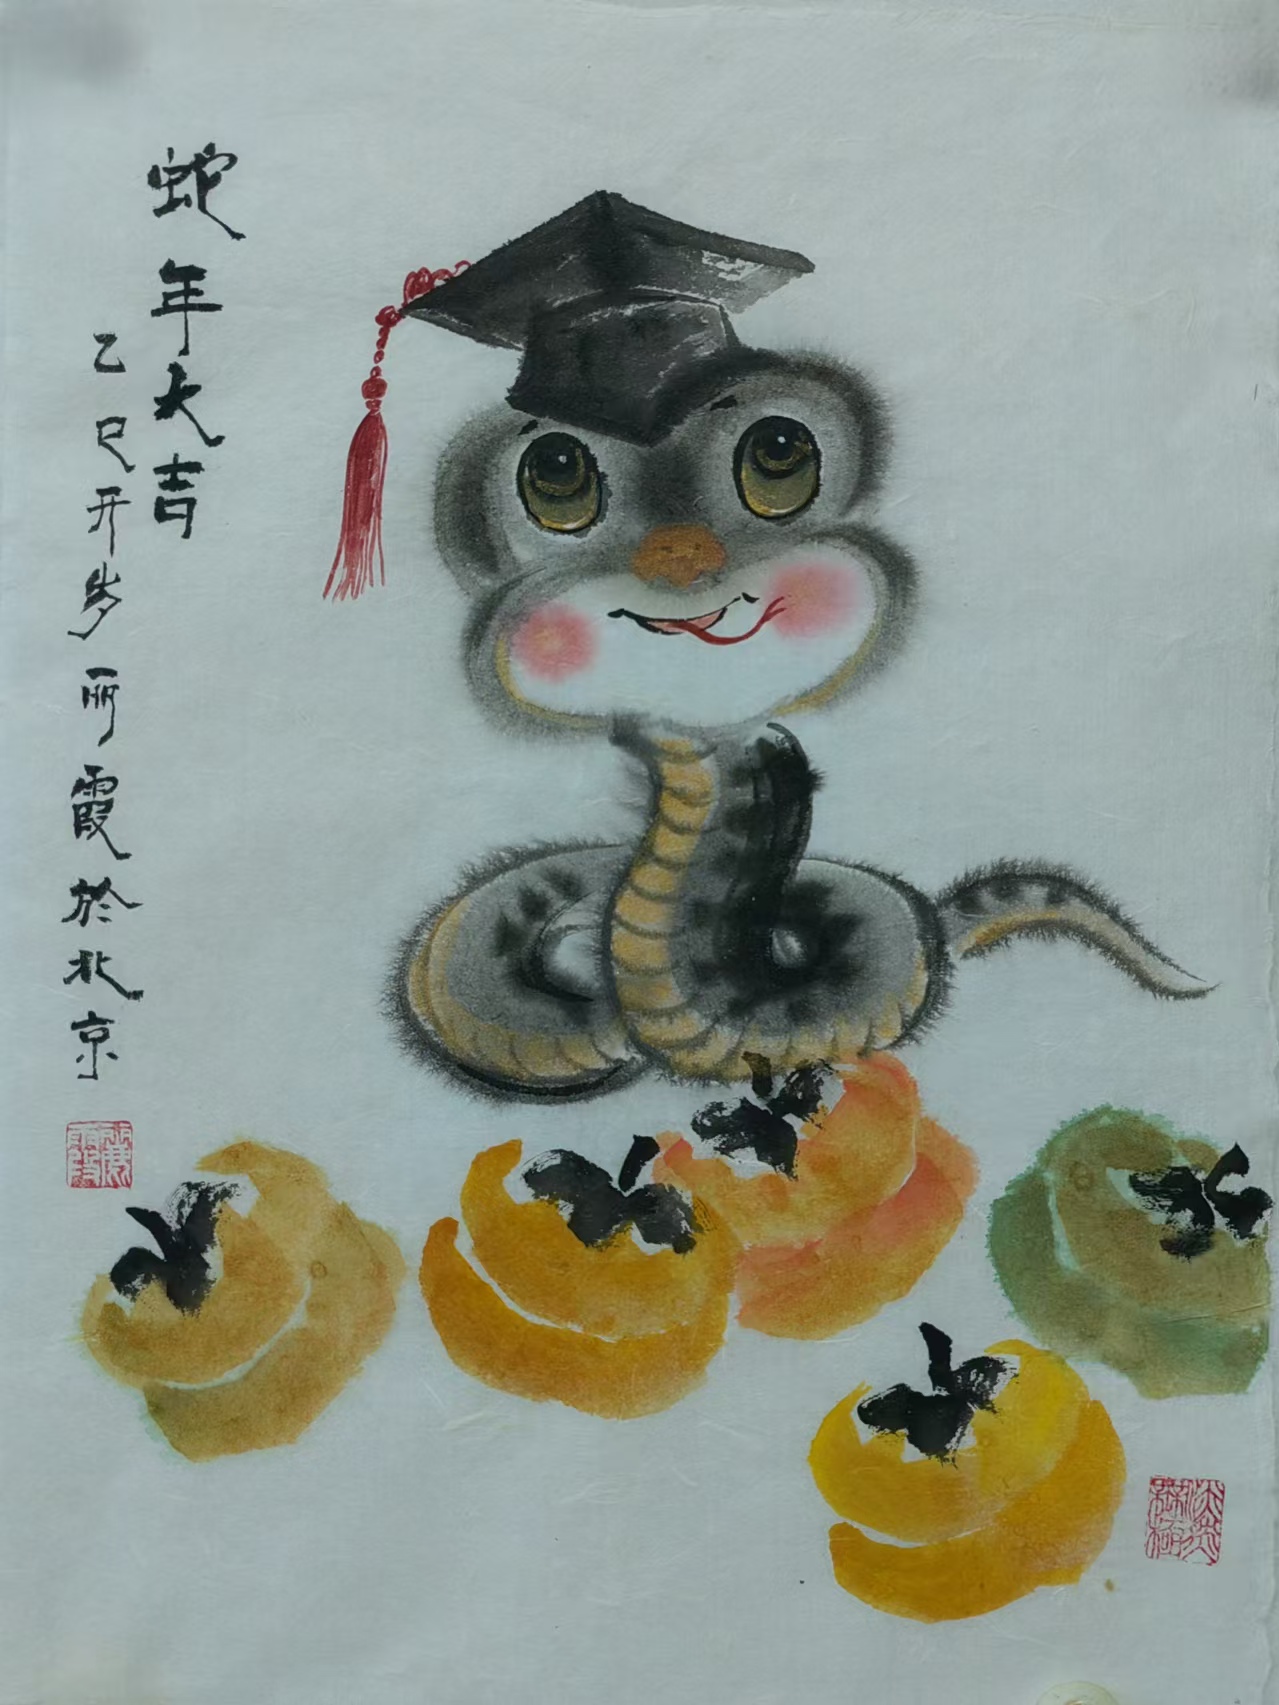 蛇年大吉
乙巳开岁丽霞於北京